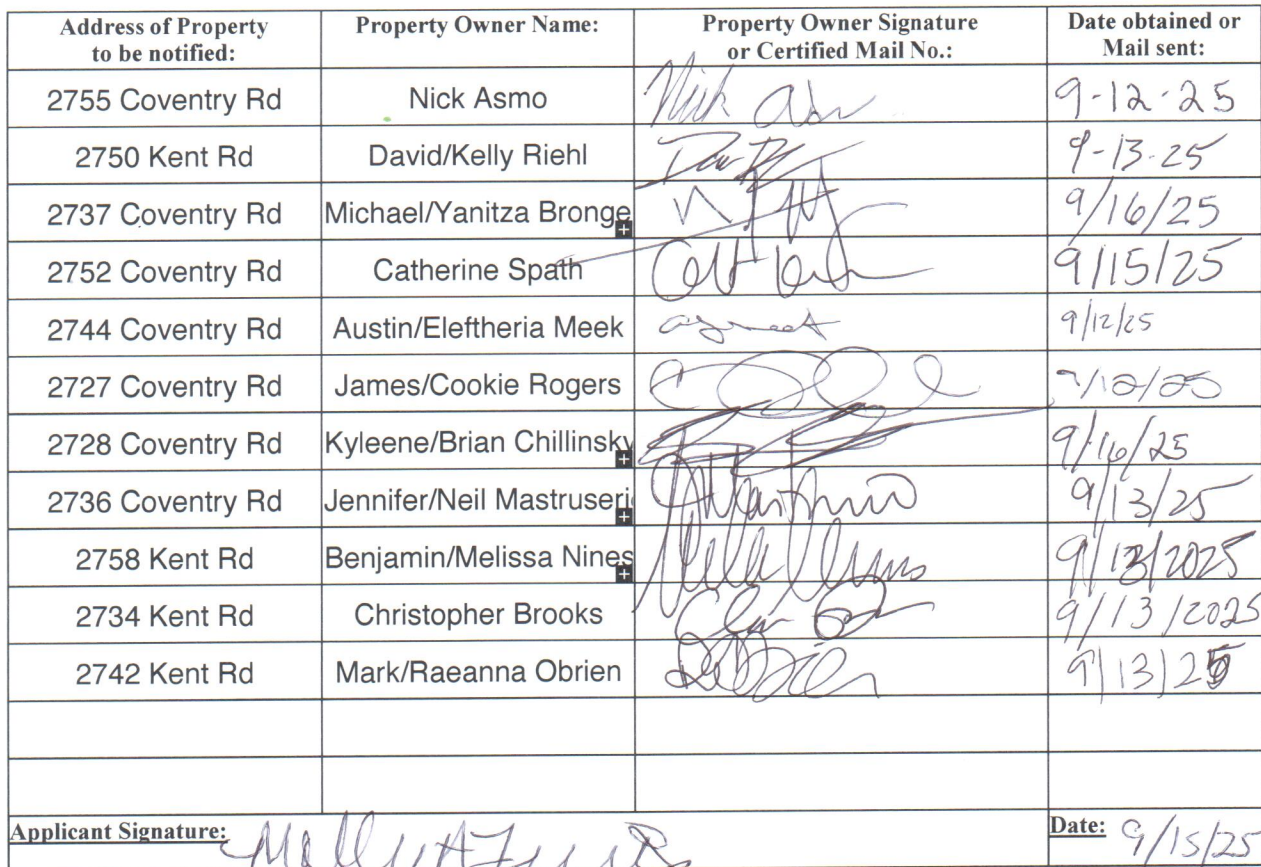 Address of Property to be notified: Property Owner Name: Property Owner Signature or Certified Mail No.: Date obtained or Mail sent:
2755 Coventry Rd Nick Asmo Nick 9-12-25
2750 Kent Rd David/Kelly Riehl 9-13-25
2737 Coventry Rd Michael/Yanitza Bronge 9/16/25
2752 Coventry Rd Catherine Spath 9/15/25
2744 Coventry Rd Austin/Eleftheria Meek 9/12/25
2727 Coventry Rd James/Cookie Rogers /12/25
2728 Coventry Rd Kyleene/Brian Chillinsky 9/16/25
2736 Coventry Rd Jennifer/Neil Mastruseri 9/13/25
2758 Kent Rd Benjamin/Melissa Nines 9/13/2025
2734 Kent Rd Christopher Brooks 9/13/2025
2742 Kent Rd Mark/Raeanna Obrien 9/13/25
Applicant Signature: Date: 9/15/25